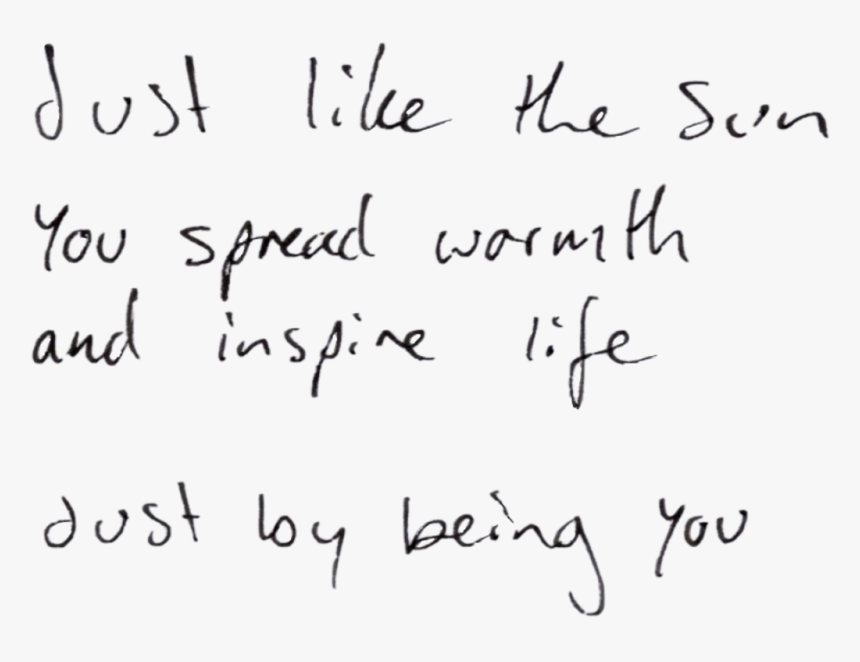 Just like the Sun
You spread warmth
and inspire life
Just by being you